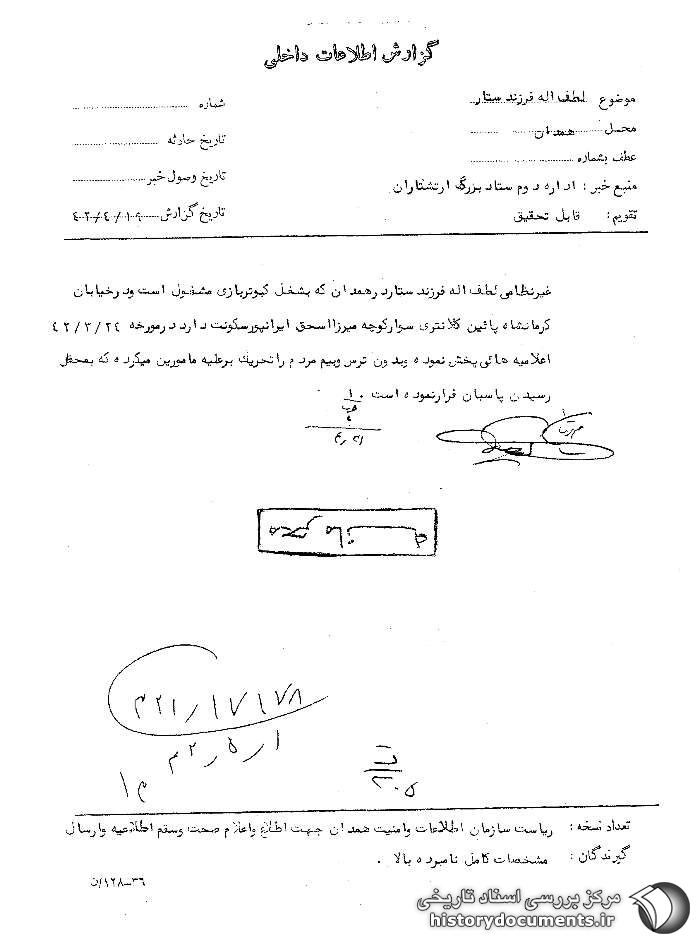 گزارش اطلاعات داخلی
موضوع لطف اله فرزند ستار
شماره
محل همدان
تاریخ حادثه
عطف بشماره
تاریخ وصول خبر
منبع خبر : اداره دوم ستاد بزرگ ارتشتاران
تاریخ گزارش ٤٢/٤/١٩
تقویم : قابل تحقیق
غیرنظامی لطف اله فرزند ستار درهمدان که بشغل کبوتربازی مشغول است ودرخیابان
کرمانشاه پائین کلانتری سوار کوچه میرزااسحق ایرانپورسکونت دارد درمورخه ٤٢/٣/٢٤
اعلامیه هائی پخش نموده وبدون ترس وبیم مردم را تحریک برعلیه مامورین میکرده که بمحض
رسیدن پاسبان فرارنموده است .
محرمانه
٣٢١/١٧١٧٨
تعداد نسخه : ریاست سازمان اطلاعات وامنیت همدان جهت اطلاع واعلام صحت وسقم اطلاعیه وارسال
گیرندگان : مشخصات کامل نامبرده بالا .
٣٦-١٢٨/ن
مرکز بررسی اسناد تاریخی
historydocuments.ir